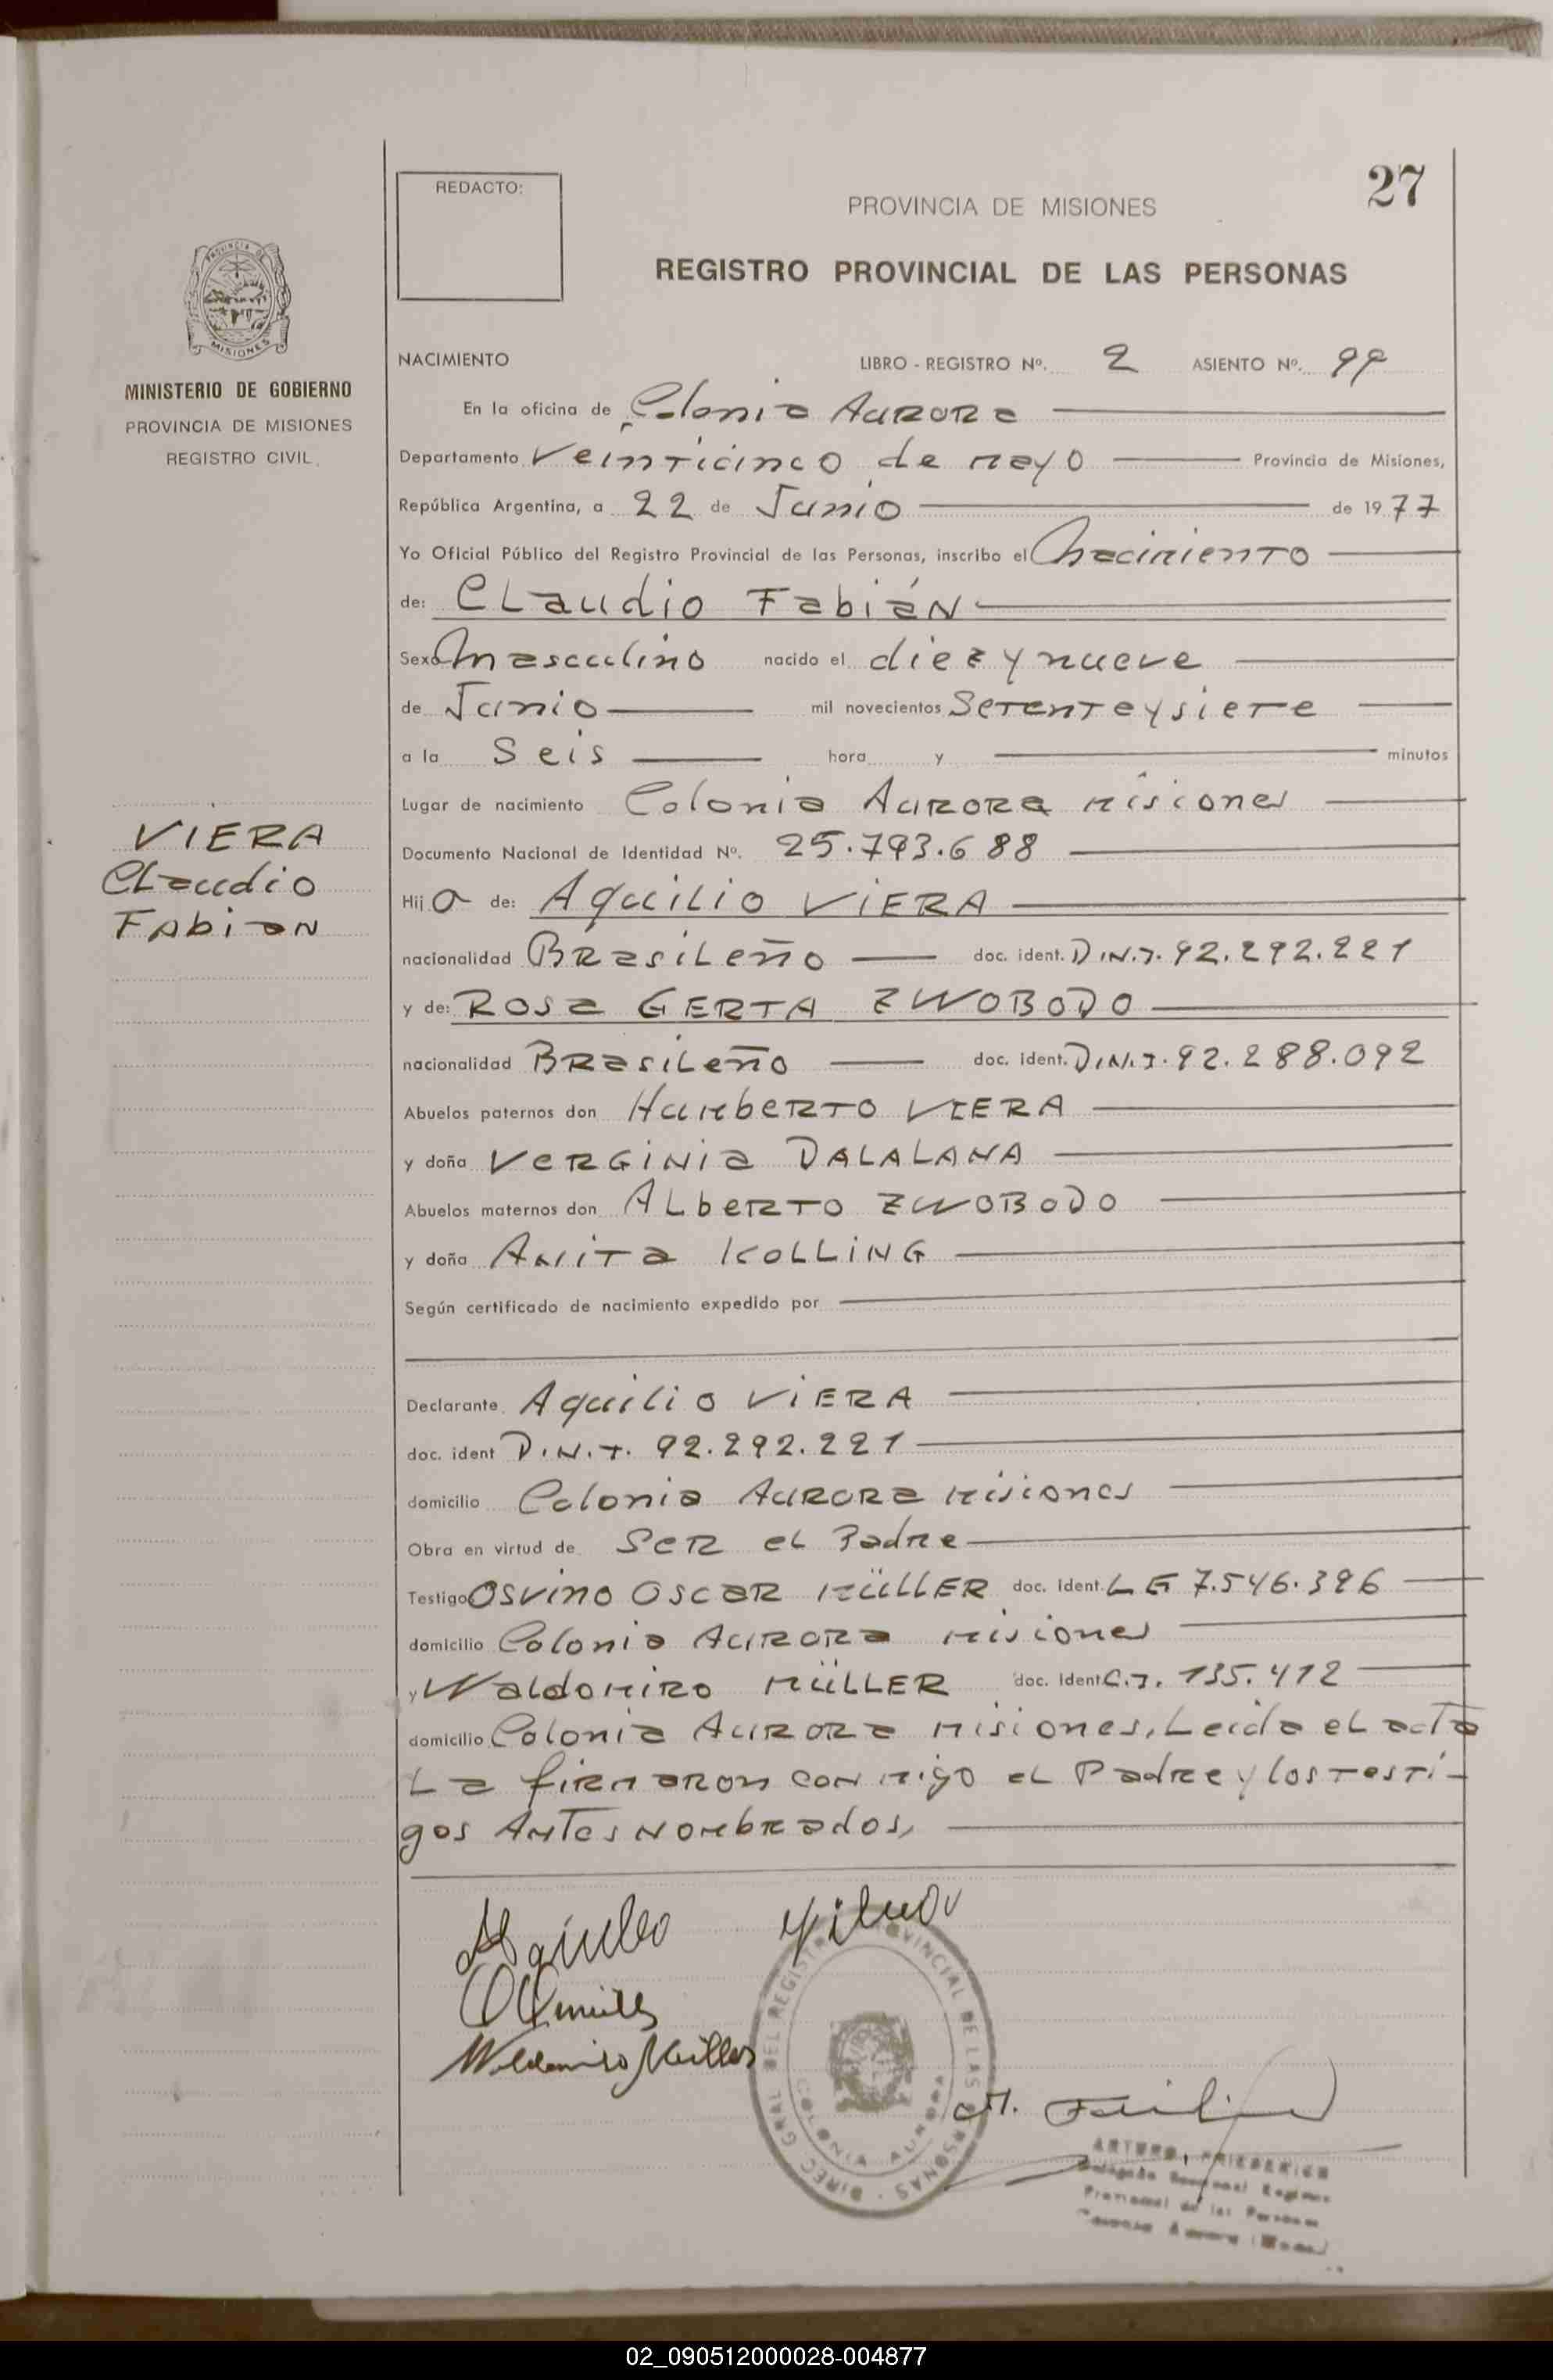 REDACTO:
27
PROVINCIA DE MISIONES
REGISTRO PROVINCIAL DE LAS PERSONAS
PROVINCIA DE
MISIONES
MINISTERIO DE GOBIERNO
PROVINCIA DE MISIONES
REGISTRO CIVIL
NACIMIENTO LIBRO - REGISTRO Nº. 2 ASIENTO Nº. 99
En la oficina de Colonia Aurora
Departamento Veinticinco de mayo Provincia de Misiones,
República Argentina, a 22 de Junio de 1977
Yo Oficial Público del Registro Provincial de las Personas, inscribo el Nacimiento
de: Claudio Fabián
Sexo Masculino nacido el diez y nueve
de Junio mil novecientos Setenta y siete
a la Seis hora y minutos
Lugar de nacimiento Colonia Aurora Misiones
VIERA
Claudio
Fabian
Documento Nacional de Identidad Nº. 25.793.688
Hijo de: Aquilio VIERA
nacionalidad Brasileño doc. ident. D.N.I. 92.292.221
y de: Rosa GERTA ZWOBODO
nacionalidad Brasileño doc. ident. D.N.I. 92.288.092
Abuelos paternos don Humberto VIERA
y doña Verginia DALALANA
Abuelos maternos don Alberto ZWOBODO
y doña Anita KOLLING
Según certificado de nacimiento expedido por
Declarante Aquilio VIERA
doc. ident D.N.I. 92.292.221
domicilio Colonia Aurora Misiones
Obra en virtud de Ser el Padre
Testigo Osvino Oscar MÜLLER doc. ident. LE 7.546.396
domicilio Colonia Aurora Misiones
y Waldomiro MÜLLER doc. Ident C.I. 135.412
domicilio Colonia Aurora Misiones, Leida el acta
La firmaron conmigo el Padre y los testi-
gos Antes nombrados,
DIREC. GRAL. DEL REGISTRO PROVINCIAL DE LAS PERSONAS
COLONIA AURORA
ARTURO FRIEDERICH
Provincial de las Personas
02_090512000028-004877